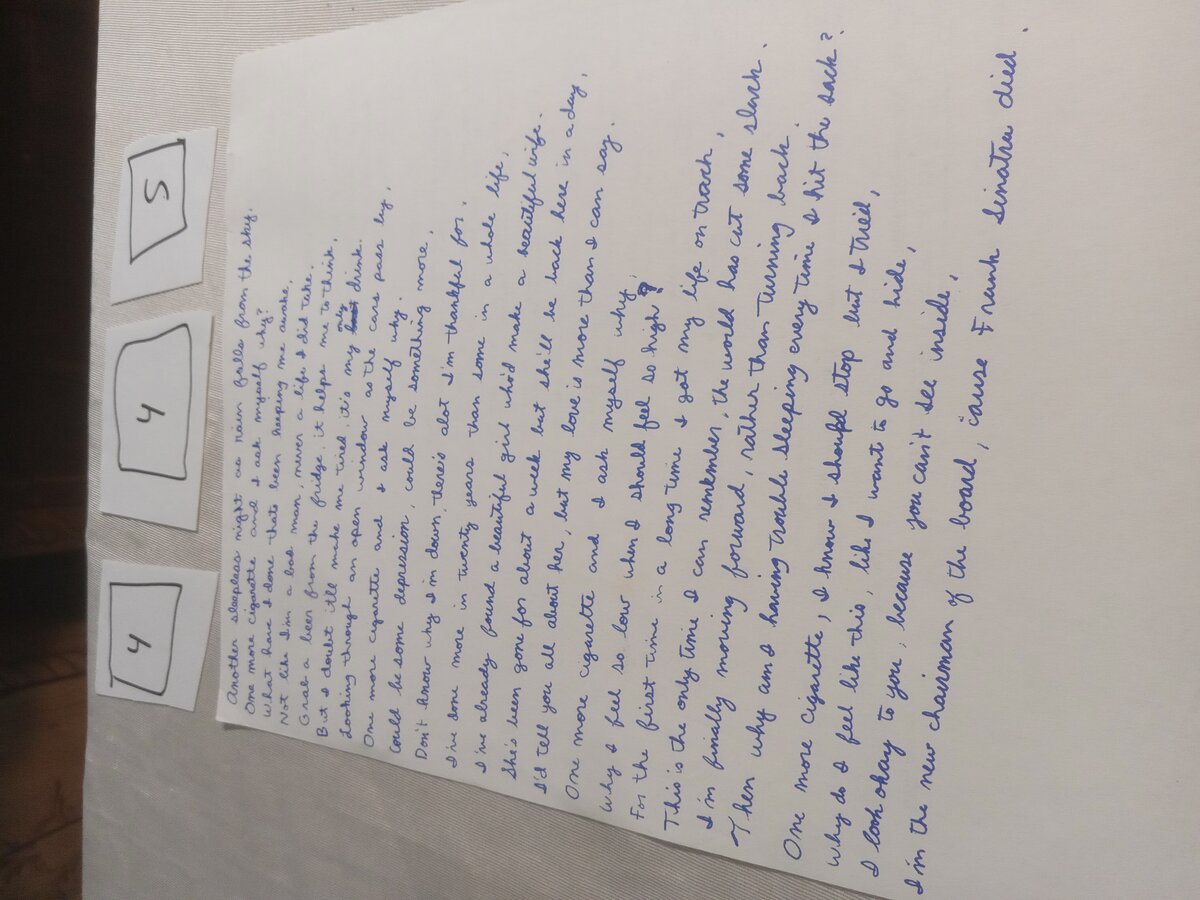 4
4
5
Another sleepless night as rain falls from the sky.
One more cigarette and I ask myself why?
What have I done thats been keeping me awake,
Not like I'm a bad man, never a life I did take.
Grab a beer from the fridge, it helps me to think,
But I doubt it'll make me tired, it's my only drink.
Looking through an open window as the cars pass by,
One more cigarette and I ask myself why.
Could be some depression, could be something more,
Don't know why I'm down, there's alot I'm thankful for,
I've done more in twenty years than some in a whole life,
I've already found a beautiful girl who'd make a beautiful wife.
She's been gone for about a week but she'll be back here in a day,
I'd tell you all about her, but my love is more than I can say.
One more cigarette and I ask myself why,
Why I feel so low when I should feel so high?
For the first time in a long time I got my life on track,
This is the only time I can remember, the world has cut some slack.
I'm finally moving forward, rather than turning back
Then why am I having trouble sleeping every time I hit the sack?
One more cigarette, I know I should stop but I tried,
Why do I feel like this, like I want to go and hide,
I look okay to you, because you can't see inside,
I'm the new chairman of the board, cause Frank Sinatra died.